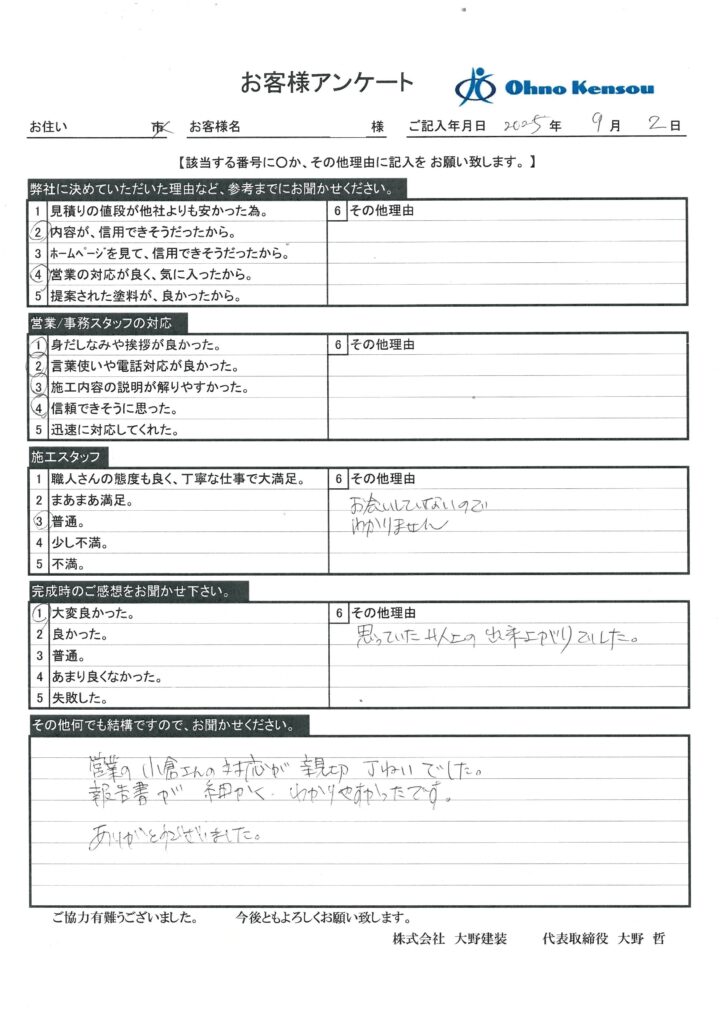 お客様アンケート
Ohno Kensou
お住い 市区 お客様名 様 ご記入年月日 2025年 9月 2日
【該当する番号に〇か、その他理由に記入を お願い致します。】
弊社に決めていただいた理由など、参考までにお聞かせください。
1 見積りの値段が他社よりも安かった為。
2 内容が、信用できそうだったから。
3 ホームページを見て、信用できそうだったから。
4 営業の対応が良く、気に入ったから。
5 提案された塗料が、良かったから。
6 その他理由
営業/事務スタッフの対応
1 身だしなみや挨拶が良かった。
2 言葉使いや電話対応が良かった。
3 施工内容の説明が解りやすかった。
4 信頼できそうに思った。
5 迅速に対応してくれた。
6 その他理由
施工スタッフ
1 職人さんの態度も良く、丁寧な仕事で大満足。
2 まあまあ満足。
3 普通。
4 少し不満。
5 不満。
6 その他理由
お会いしていないので
わかりません
完成時のご感想をお聞かせ下さい。
1 大変良かった。
2 良かった。
3 普通。
4 あまり良くなかった。
5 失敗した。
6 その他理由
思っていた以上の出来上がりでした。
その他何でも結構ですので、お聞かせください。
営業の小倉さんの対応が親切丁ねいでした。
報告書が細かくわかりやすかったです。
ありがとうございました。
ご協力有難うございました。 今後ともよろしくお願い致します。
株式会社 大野建装 代表取締役 大野 哲